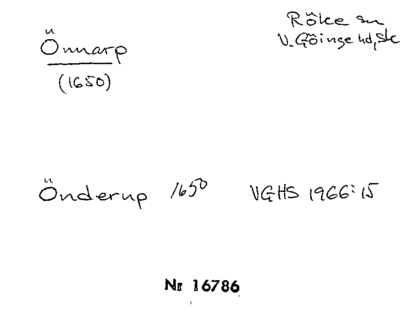 Önnarp
(1650)
Röke sn
V. Göinge hd, Sk
Önderup 1650 VGHS 1966:15
Nr 16786